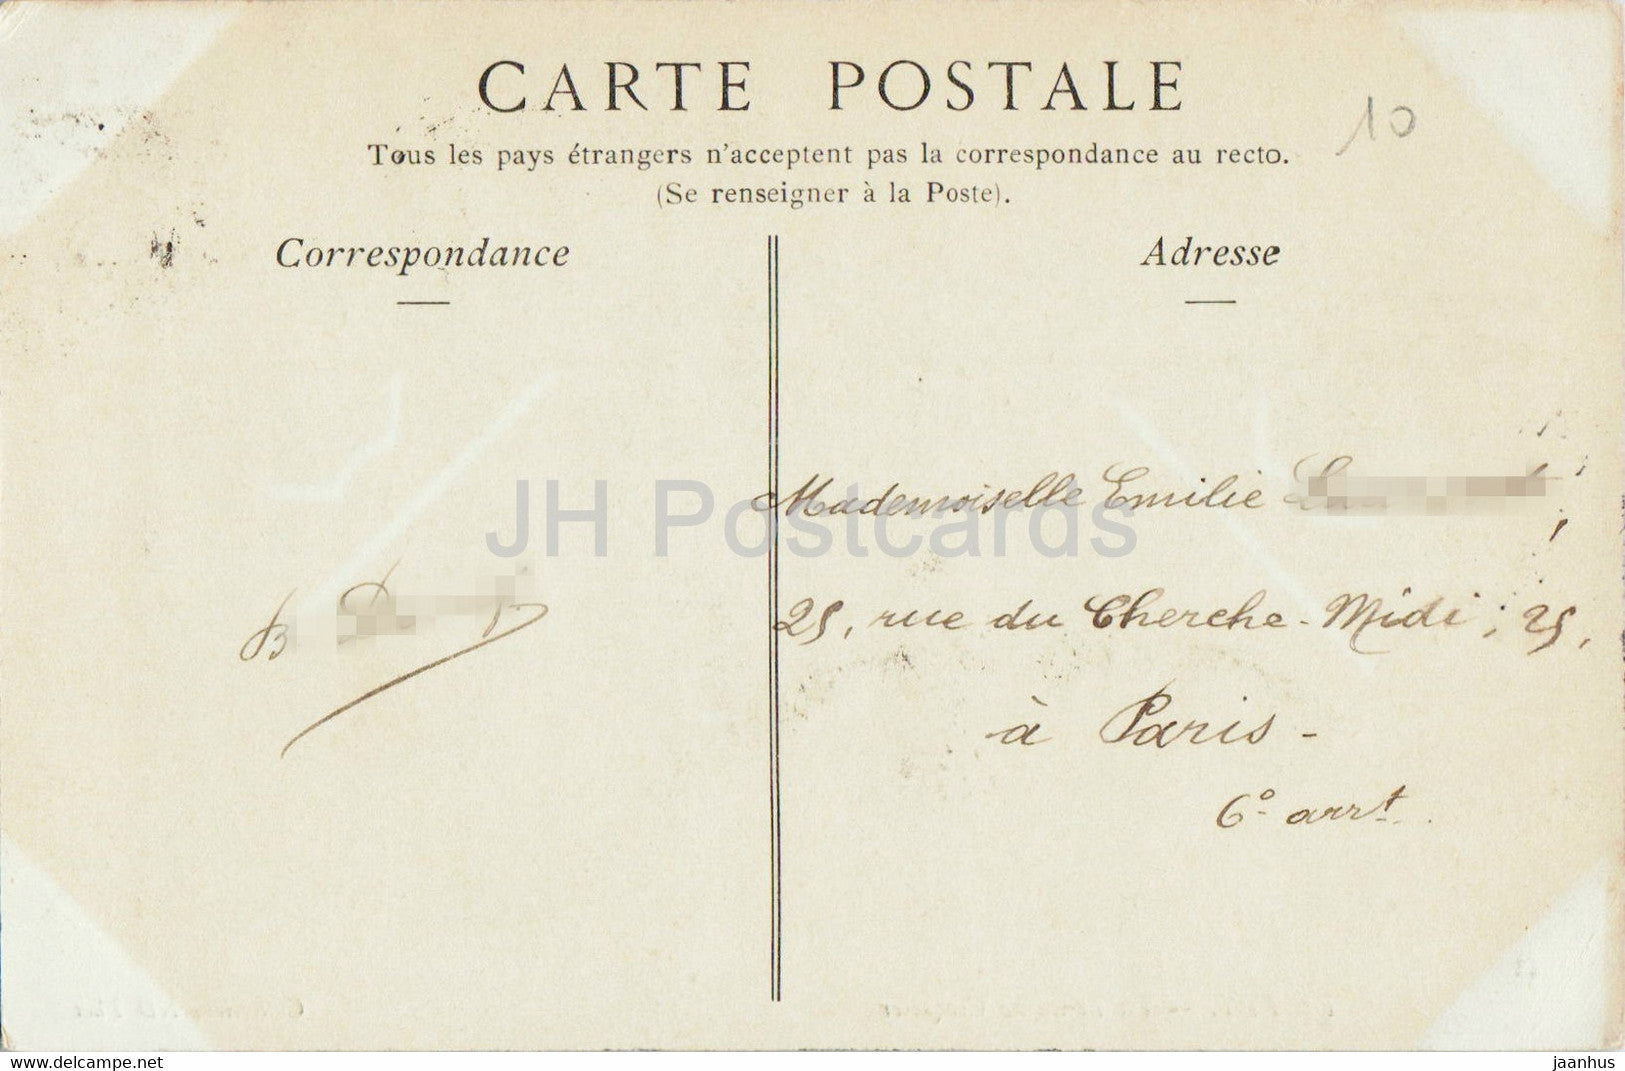 CARTE POSTALE
10
Tous les pays étrangers n'acceptent pas la correspondance au recto.
(Se renseigner à la Poste).
Correspondance
Adresse
JH Postcards
Mademoiselle Emilie
B
25, rue du Cherche-Midi; 25,
à Paris -
6º arrt.
www.delcampe.net
jaanhus